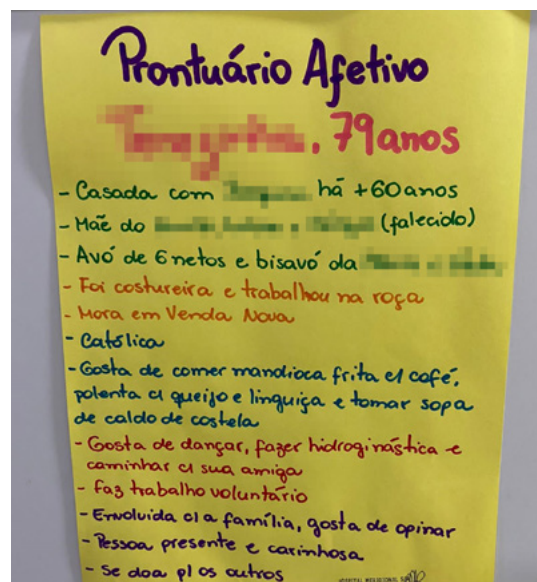 Prontuário Afetivo
, 79 anos
- Casada com há +60 anos
- Mãe do (falecido)
- Avó de 6 netos e bisavó da
- Foi costureira e trabalhou na roça
- Mora em Venda Nova
- Católica
- Gosta de comer mandioca frita c/ café,
polenta c/ queijo e linguiça e tomar sopa
de caldo de costela
- Gosta de dançar, fazer hidroginástica e
caminhar c/ sua amiga
- Faz trabalho voluntário
- Envolvida c/ a família, gosta de opinar
- Pessoa presente e carinhosa
- Se doa p/ os outros